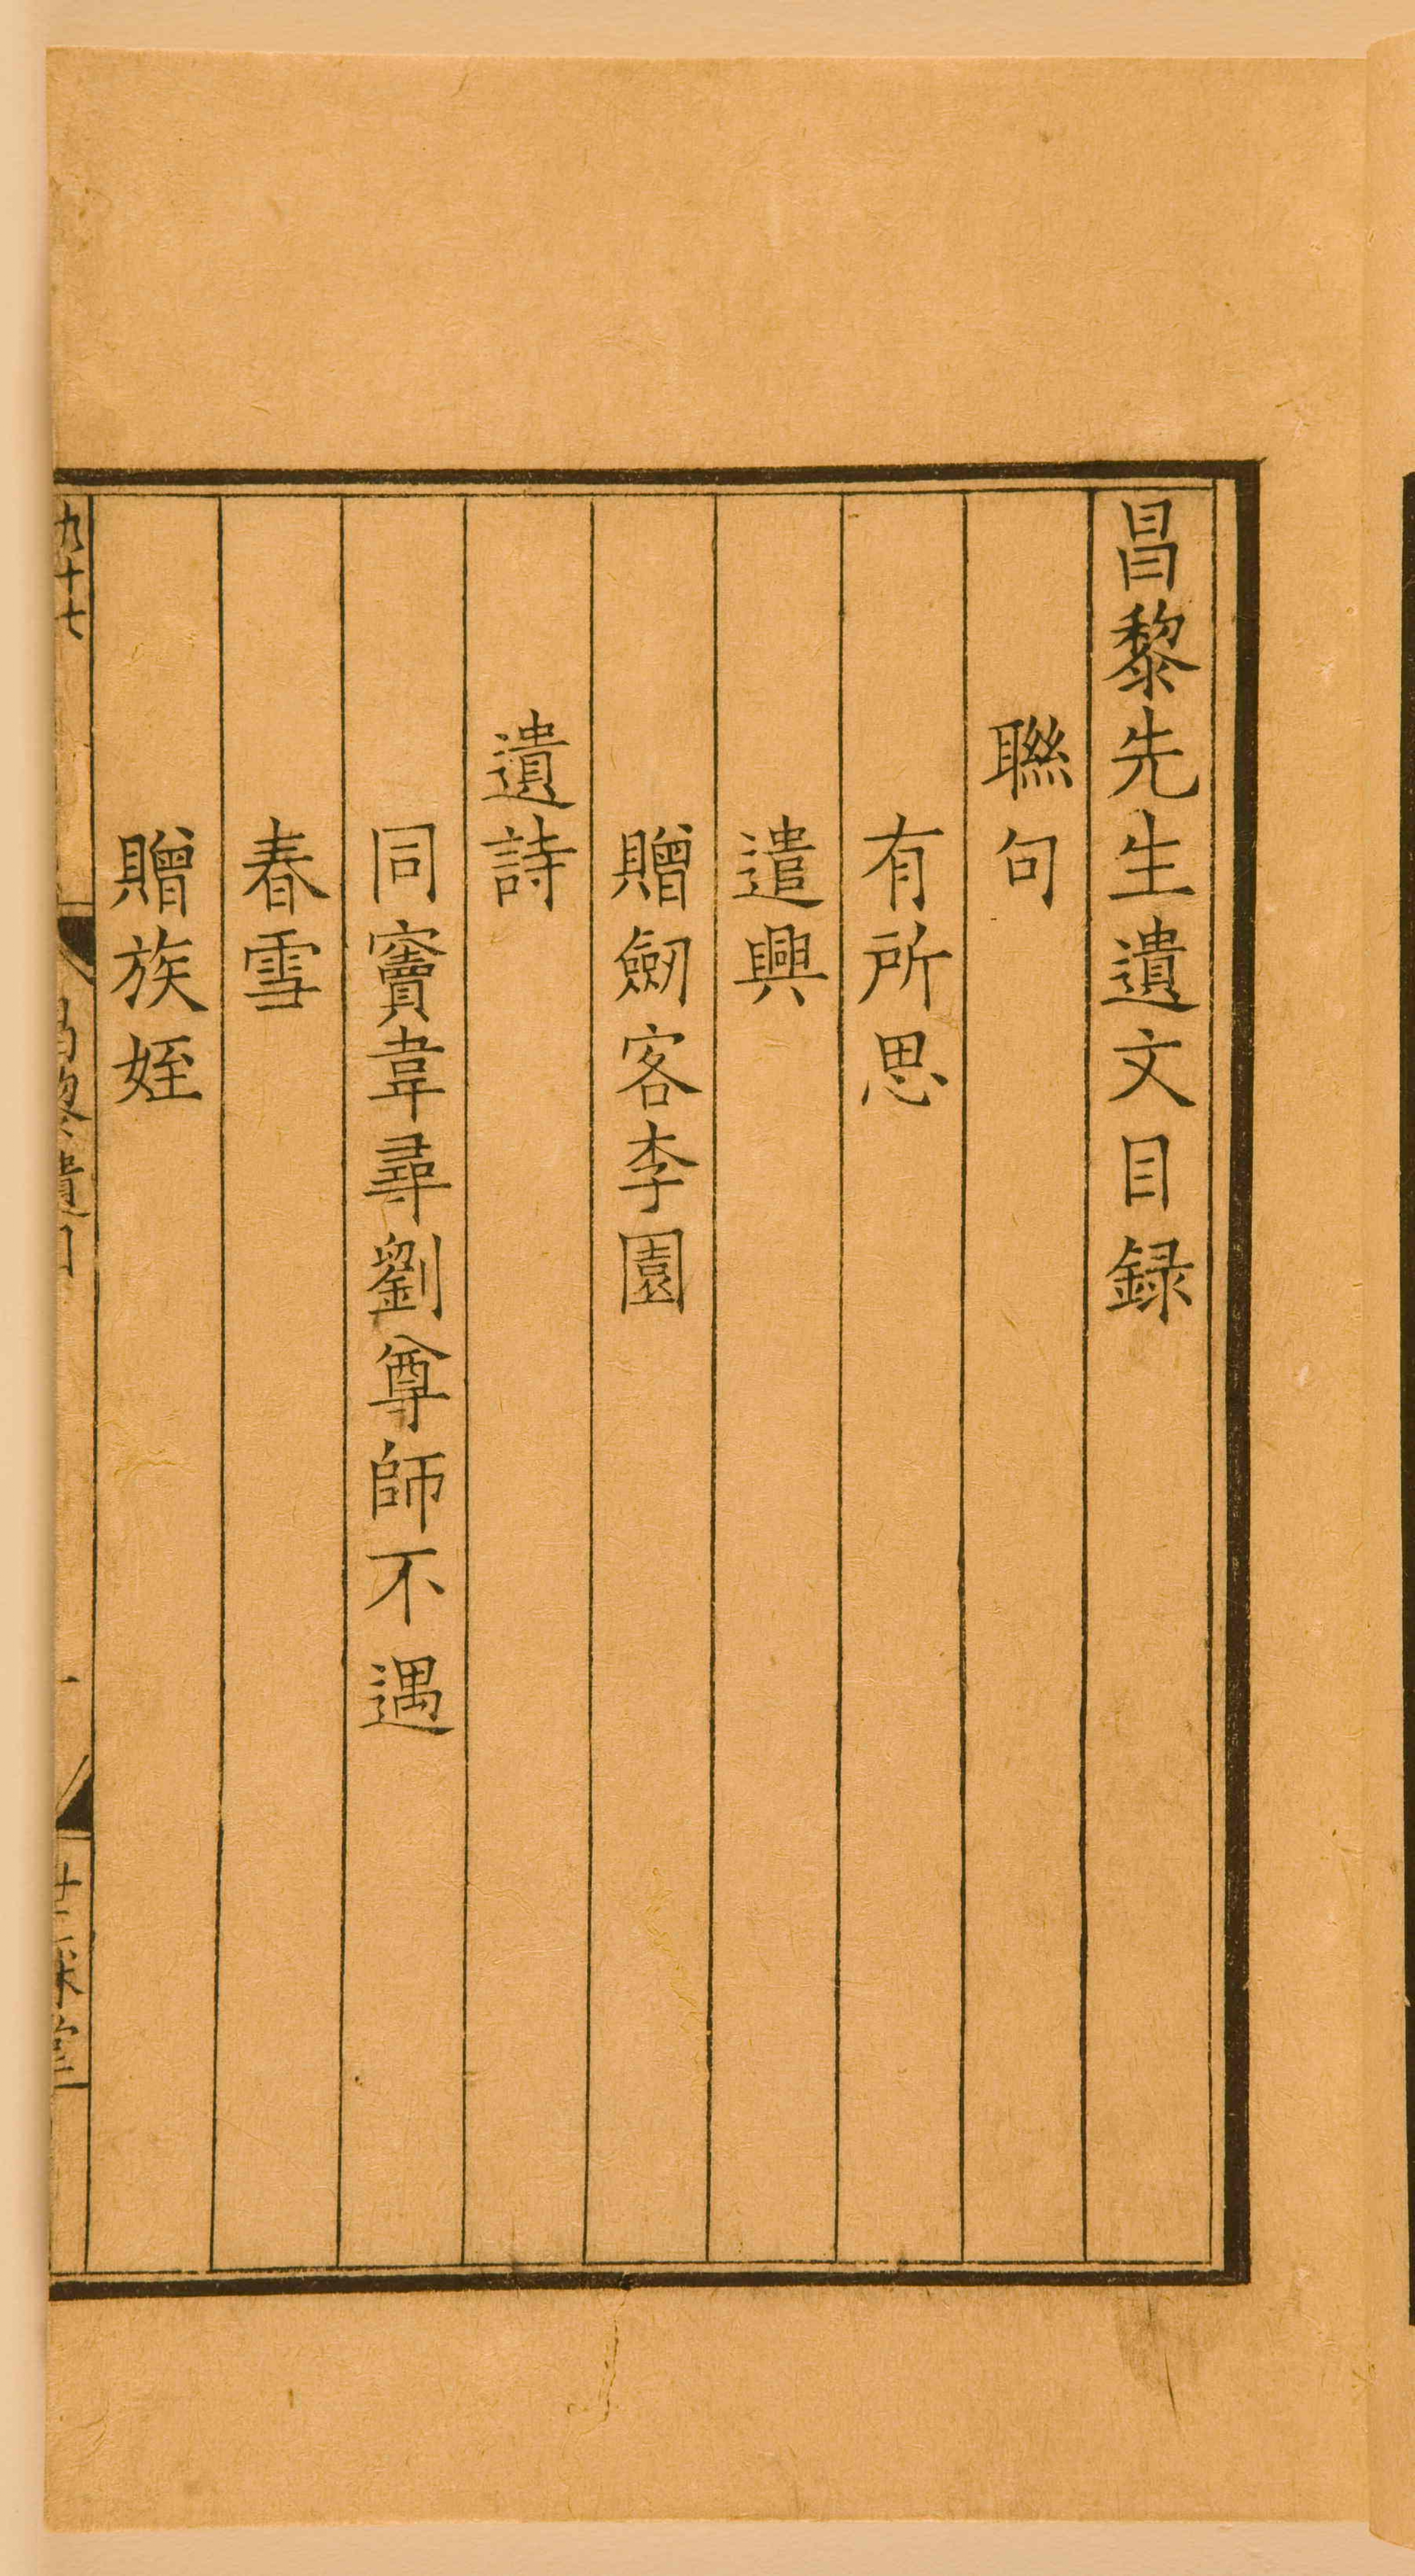 昌黎先生遺文目録
聯句
有所思
遣興
贈劒客李園
遺詩
同竇韋尋劉尊師不遇
春雪
贈族姪
九十七